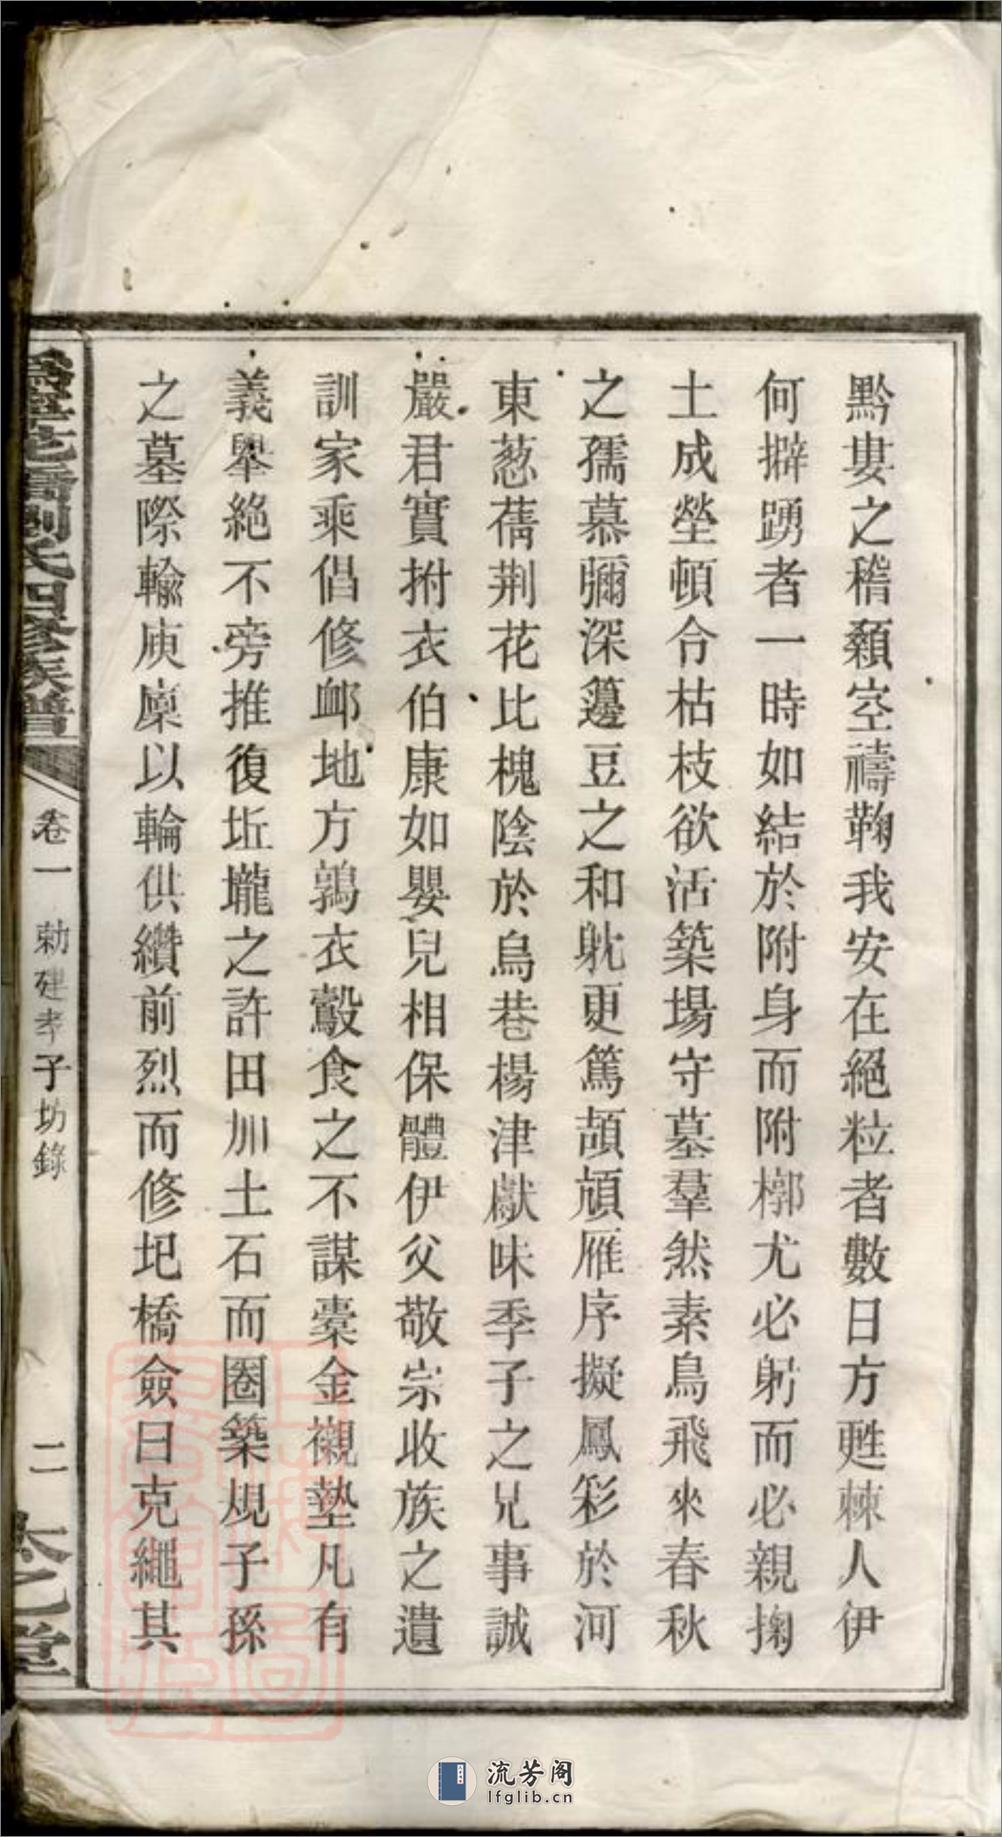 黔婁之稽顙空禱鞠我安在絕粒者數日方甦棘人伊
何擗踴者一時如結於附身而附槨尤必躬而必親掬
土成塋頓令枯枝欲活築場守墓羣然素鳥飛來春秋
之孺慕彌深籩豆之和躭更篤頡頏雁序擬鳳彩於河
東葱蒨荆花比槐陰於烏巷楊津獻味季子之兄事誠
嚴君實拊衣伯康如嬰兒相保體伊父敬宗收族之遺
訓家乘倡修卹地方鶉衣鷇食之不謀槖金襯墊凡有
義舉絕不旁推復坵壠之許田加土石而圈築規子孫
之墓際輸庾廩以輪供纘前烈而修圯橋僉曰克繩其
橋劉氏四修族譜
卷一
勅建孝子坊錄
二
太乙堂
流芳阁
lfglib.cn